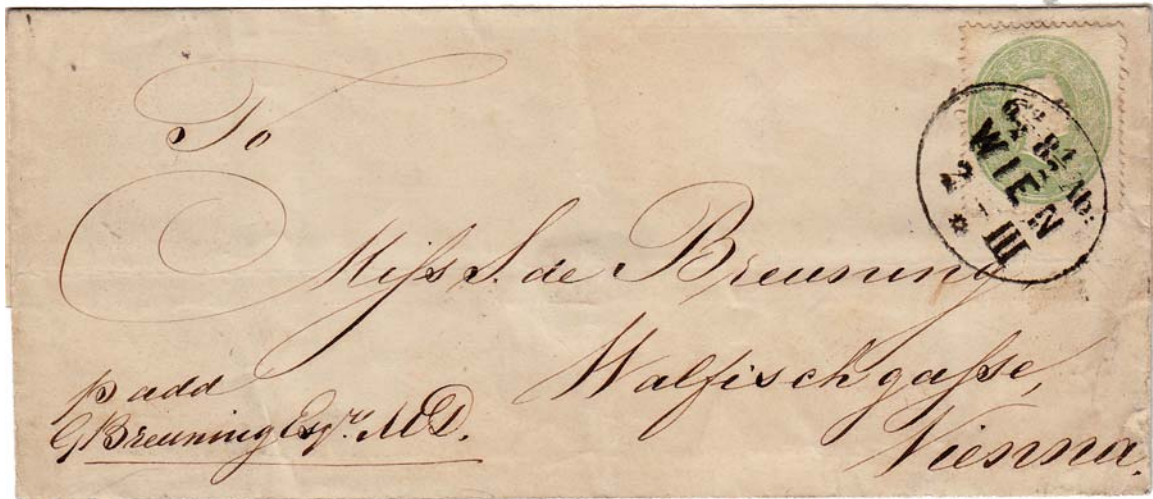 To
Miss S. de Breuning
Walfischgasse,
Vienna.
p add
G Breuning Esqre. MD.
WIEN
2 III